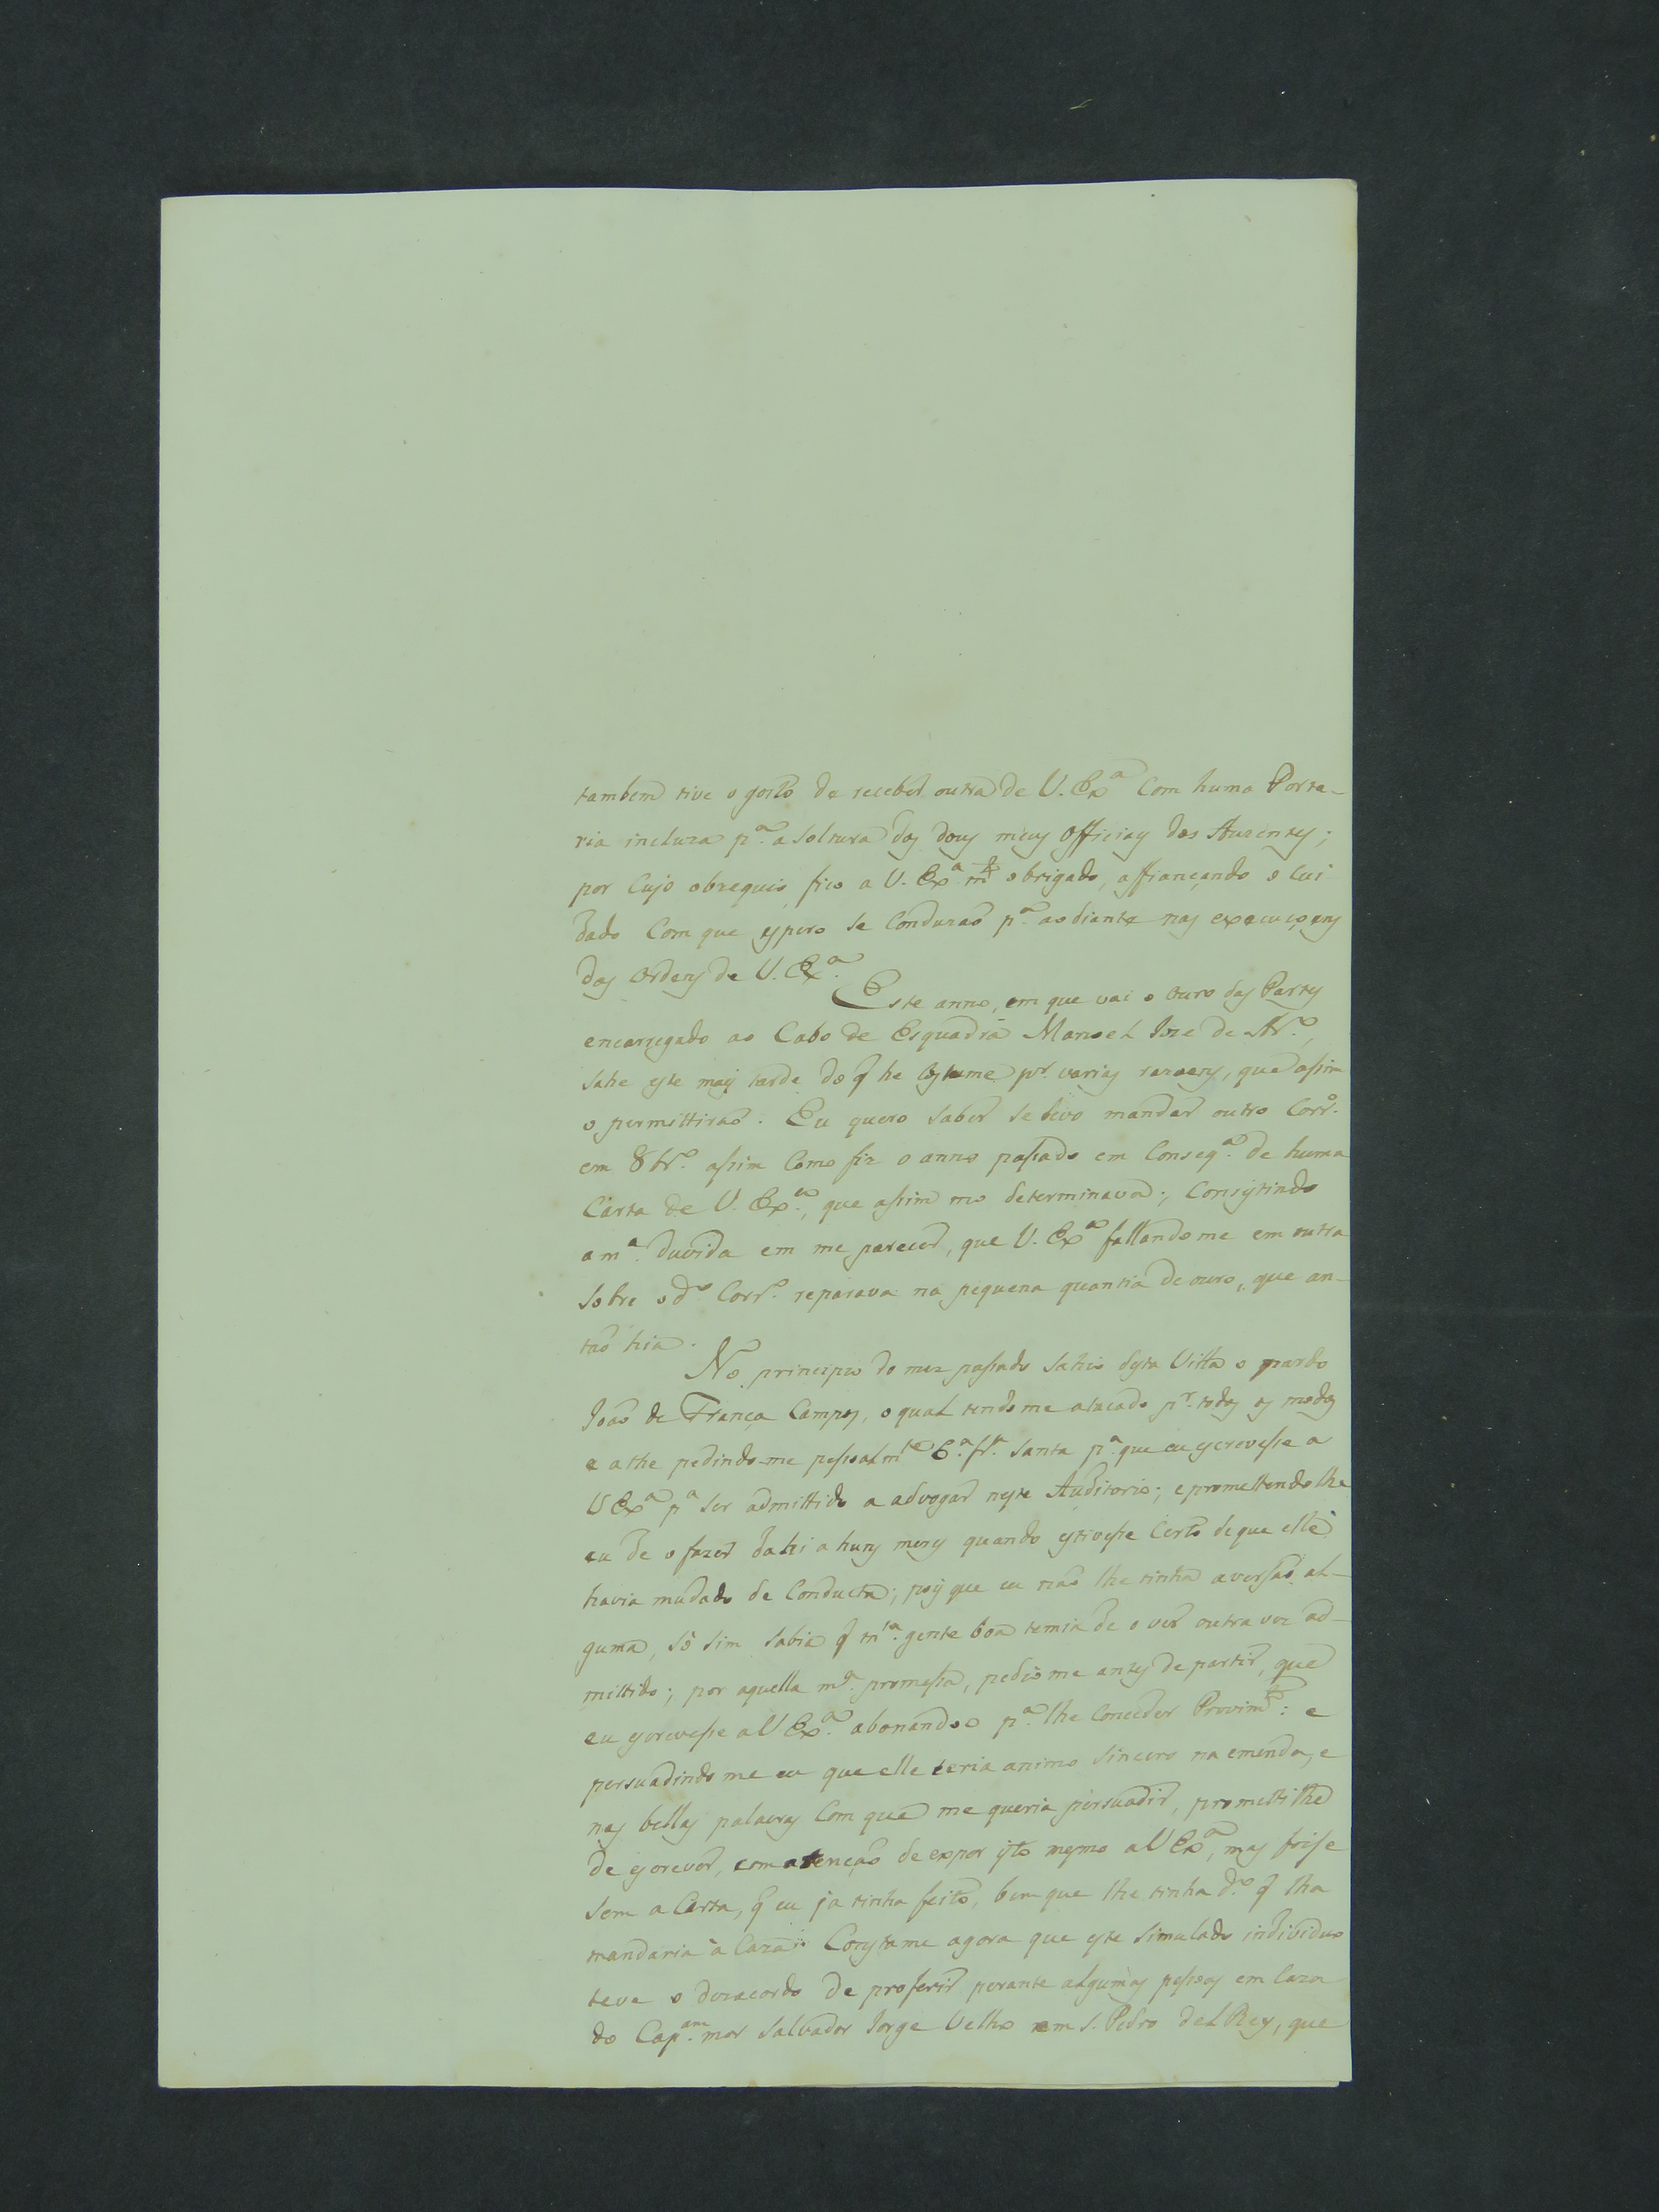 tambem tive o gosto de receber outra de V. Exª com huma Porta-
ria incluza pª a soltura dos dous meus Officiaes dos Auzentes;
por cujo obzequio fico a V. Exª mtº obrigado, affiançando o cui
dado com que espero se conduzaõ pª ao diante nas execuçoens
das Ordens de V. Exª.
Este anno, em que vai o ouro das Partes
encarregado ao Cabo de Esquadra Manoel Joze de Arº,
sahe este mais tarde do q̃ he costume pr. varias razoens, que assim
o permittiraõ. Eu quero saber se devo mandar outro Corrº.
em 8brº. assim como fiz o anno passado em conseqª. de huma
Carta de V. Exª., que assim mo determinava; consistindo
a mª. duvida em me parecer, que V. Exª fallando me em outra
sobre o dº Corrº. reparava na pequena quantia de ouro, que an-
taõ hia.
No principio do mez passado sahio desta Villa o pardo
Joaõ de França Campos, o qual tendo me atacado pr. todos os modos
e athe pedindo-me pessoalmte 6.ª frª. santa pª. que eu escrevesse a
V Exª pª ser admittido a advogar neste Auditorio; e promettendo lhe
eu de o fazer dahi a huns mezes quando estivesse certo de que elle
havia mudado de conducta; pois que eu naõ lhe tinha aversaõ al-
guma, só sim sabia q̃ mtª. gente boa temia de o ver outra vez ad-
mittido; por aquella mª. promessa, pedio me antes de partir, que
eu escrevesse a V Exª. abonando o pª. lhe conceder Provimtº: e
persuadindo me eu que elle teria animo sincero na emenda, e
nas bellas palavras com que me queria persuadir, prometti lhe
de escrever, com atençaõ de expor isto mesmo a V Exª, mas foi se
sem a Carta, q̃ eu ja tinha feito, bem que lhe tinha dº. q̃ lha
mandaria à Caza. Consta me agora que este simulado individuo
teve o dezacordo de proferir perante algumas pessoas em caza
do Capam. mor Salvador Jorge Velho em S. Pedro del Rey, que